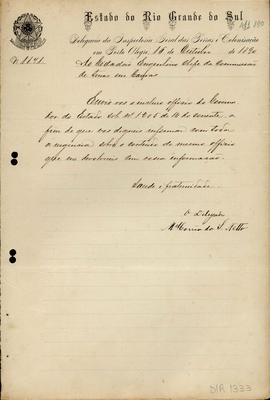 Aff 190
Estado do Rio Grande do Sul
Delegacia da Inspectoria Geral das Terras e Colonisação
em Porto Alegre, 15 de Outubro de 1890
N. 1141.
Ao Cidadão Engenheiro Chefe da Commissão
de Terras em Caxias
officio do Governa
dor do Estado sob nº 1206 de 10 do corrente, a
fim de que vos digneis informar com toda
a urgencia sobre o conteudo do mesmo officio
que me devolvereis com vossa informação.
Saude e fraternidade.
O Delegado
do S. Netto
DIR 1333